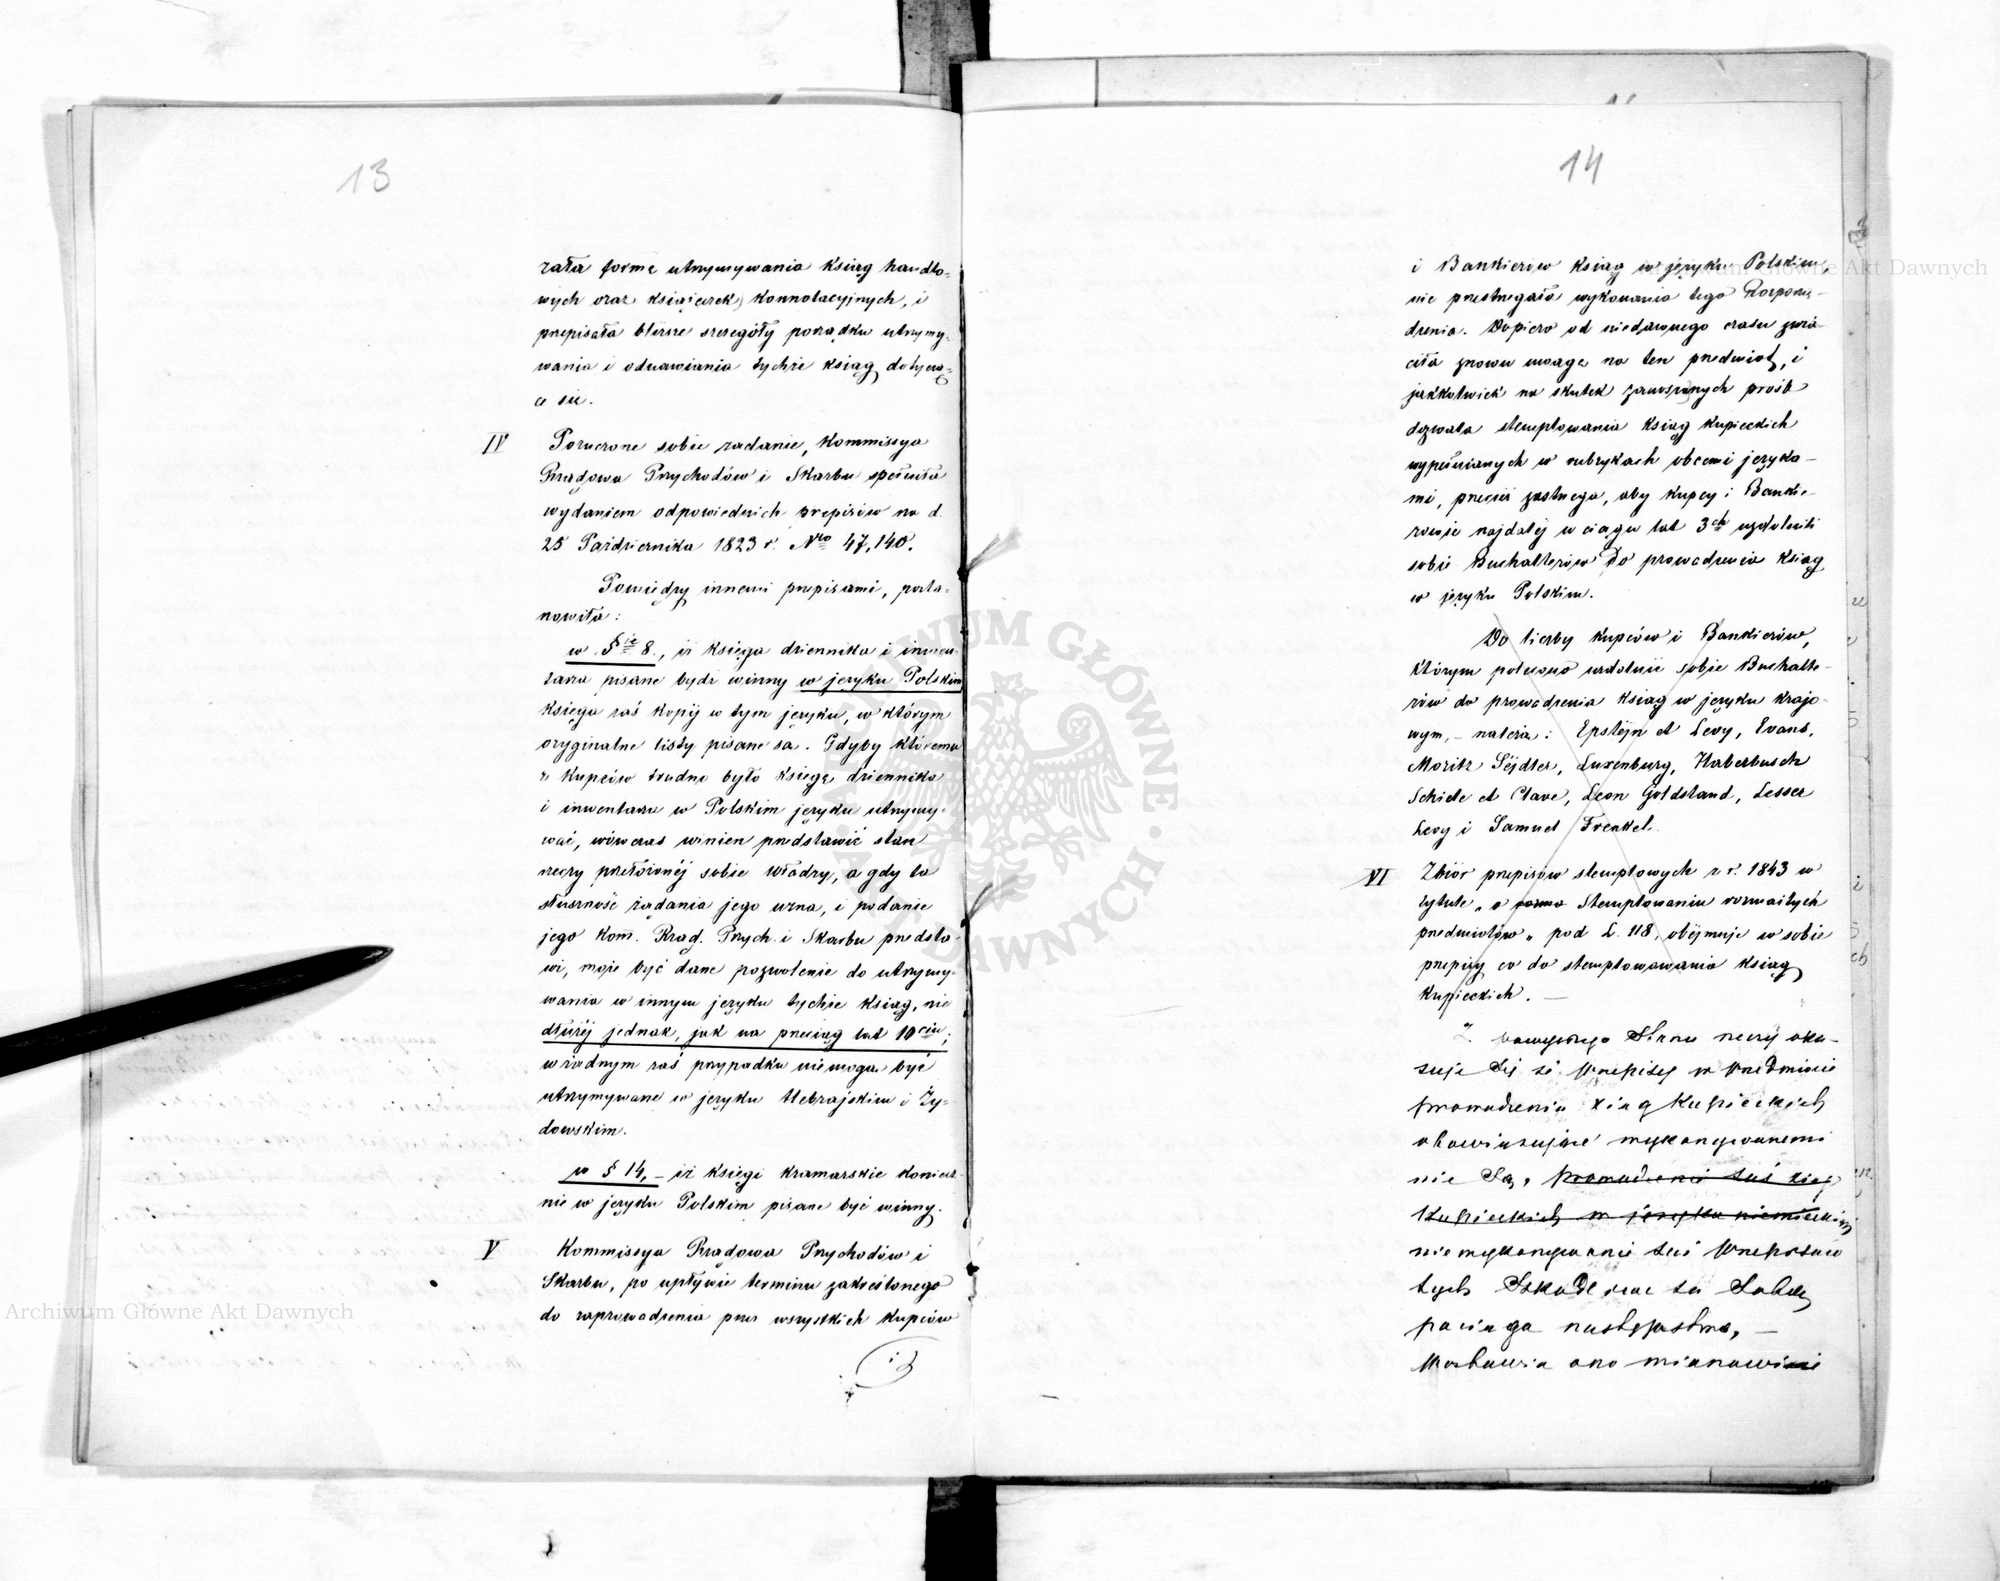 13
zała formę utrzymywania ksiąg handlo=
wych oraz książeczek konnotacyjnych, i
przepisała bliższe szczegóły porządku utrzymy-
wania i odnawiania tychże ksiąg dotyczą=
ce się.
IV Poruczone sobie zadanie, Kommissya
Rządowa Przychodów i Skarbu spełniła
wydaniem odpowiednich przepisów na d.
25 Października 1823 r. Nro 47,140.
Pomiędzy innemi przepisami, posta-
nowiła:
w §ie 8., iż księga dziennika i inwen-
tarza pisane bydź winny w języku Polskim
księga zaś kopij w tym języku, w którym
oryginalne listy pisane są. Gdyby któremu
z kupców trudno było księgę dziennika
i inwentarza w Polskim języku utrzymy-
wać, wówczas winien przedstawić stan
rzeczy przełożonéj sobie Władzy, a gdy ta
słuszność żądania jego uzna, i podanie
jego Kom. Rząd. Przych. i Skarbu przedsta-
wi, może być dane pozwolenie do utrzymy-
wania w innym języku tychże ksiąg, nie
dłużéj jednak, jak na przeciąg lat 10ciu;
w żadnym zaś przypadku nie mogą być
utrzymywane w języku Hebrajskim i Ży-
dowskim.
w § 14, – iż księgi kramarskie koniecz-
nie w języku Polskim pisane być winny.
V Kommissya Rządowa Przychodów i
Skarbu, po upływie terminu zakreślonego
do zaprowadzenia przez wszystkich kupców
i
14
i Bankierów ksiąg w języku Polskim,
nie przestrzegała wykonania tego Rozporzą-
dzenia. Dopiero od niedawnego czasu zwró-
ciła znowu uwagę na ten przedmiot, i
jakkolwiek na skutek zanoszonych prośb
dozwala stemplowania ksiąg kupieckich
wypełnianych w rubrykach obcemi języka-
mi, przecież zastrzega, aby kupcy i Bankie-
rowie najdaléj w ciągu lat 3ch uzdolnili
sobie Buchalterów do prowadzenia ksiąg
w języku Polskim.
Do liczby kupców i Bankierów,
którym polecono uzdolnić sobie Buchalte-
rów do prowadzenia ksiąg w języku krajo-
wym, – należą: Epstejn et Levy, Evans,
Moritz Séjdler, Luxenburg, Haberbusch
Schiele et Clave, Leon Goldstand, Lesser
Levy i Samuel Frenkel.
VI Zbiór przepisów stemplowych z r. 1843 w
tytule „o Stemplowaniu rozmaitych
przedmiotów„ pod L. 118, obéjmuje w sobie
przepisy co do stemplowowania ksiąg
kupieckich. –
Z powyższego Stanu rzeczy oka-
zuje Się że Przepisy w Przedmiocie
prowadzenia xiąg Kupieckich
obowiązujące wykonywanemi
nie Są, prowadzenie zaś xiąg
Kupieckich w języku niemieckim
nie wykonywanie zaś Przepisów
tych Szkodliwe za Sobą
pociąga następstwa, –
Postawia ono mianowicie
Archiwum Główne Akt Dawnych
Archiwum Główne Akt Dawnych
ARCHIWUM GŁÓWNE AKT DAWNYCH